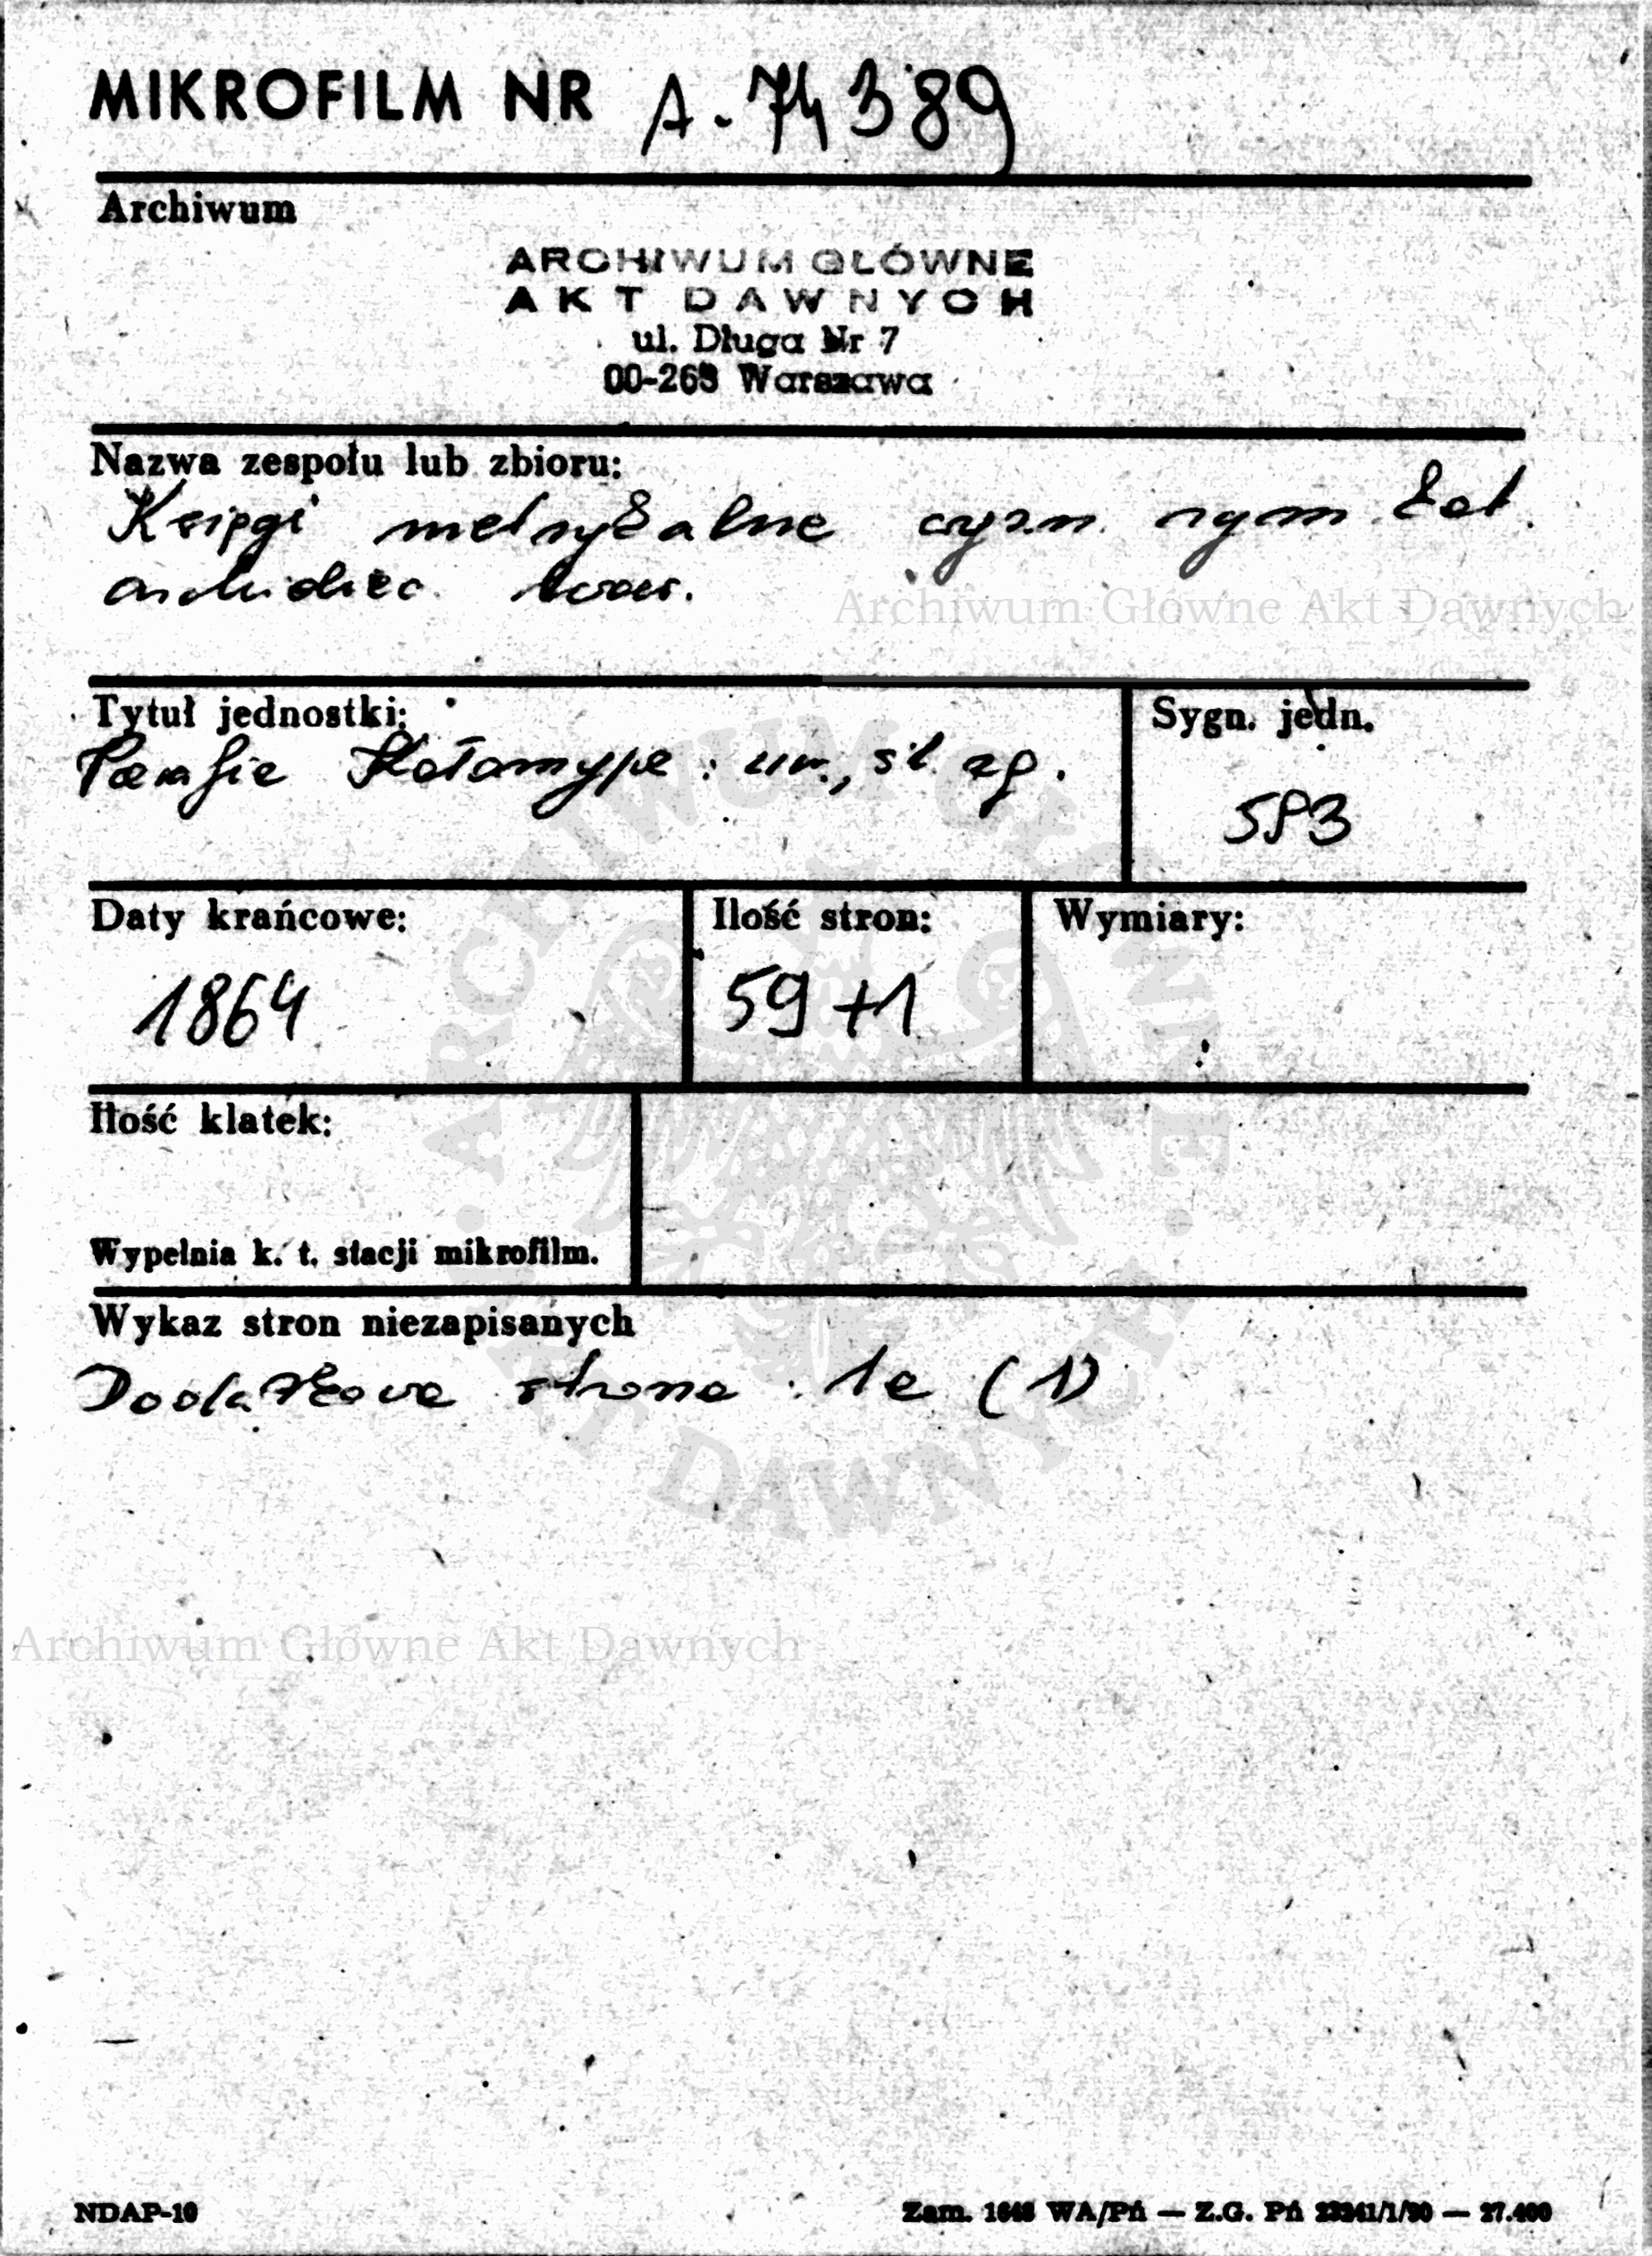 MIKROFILM NR A-74389
Archiwum
ARCHIWUM GŁÓWNE
AKT DAWNYCH
ul. Długa Nr 7
00-263 Warszawa
Nazwa zespołu lub zbioru:
Księgi metrykalne rzym. kat.
archidiec. lwow.
Archiwum Główne Akt Dawnych
Tytuł jednostki:
Sygn. jedn.
Parafie Kołomyja: ur., śl. zg.
583
Daty krańcowe:
Ilość stron:
Wymiary:
1864
59+1
Ilość klatek:
Wypełnia k. t. stacji mikrofilm.
Wykaz stron niezapisanych
Dodatkowa strona: 1a (1)
ARCHIWUM GŁÓWNE · AKT DAWNYCH ·
Archiwum Główne Akt Dawnych
NDAP-10
Zam. 1646 WA/Pń — Z.G. Pń 23241/1/90 — 27.400